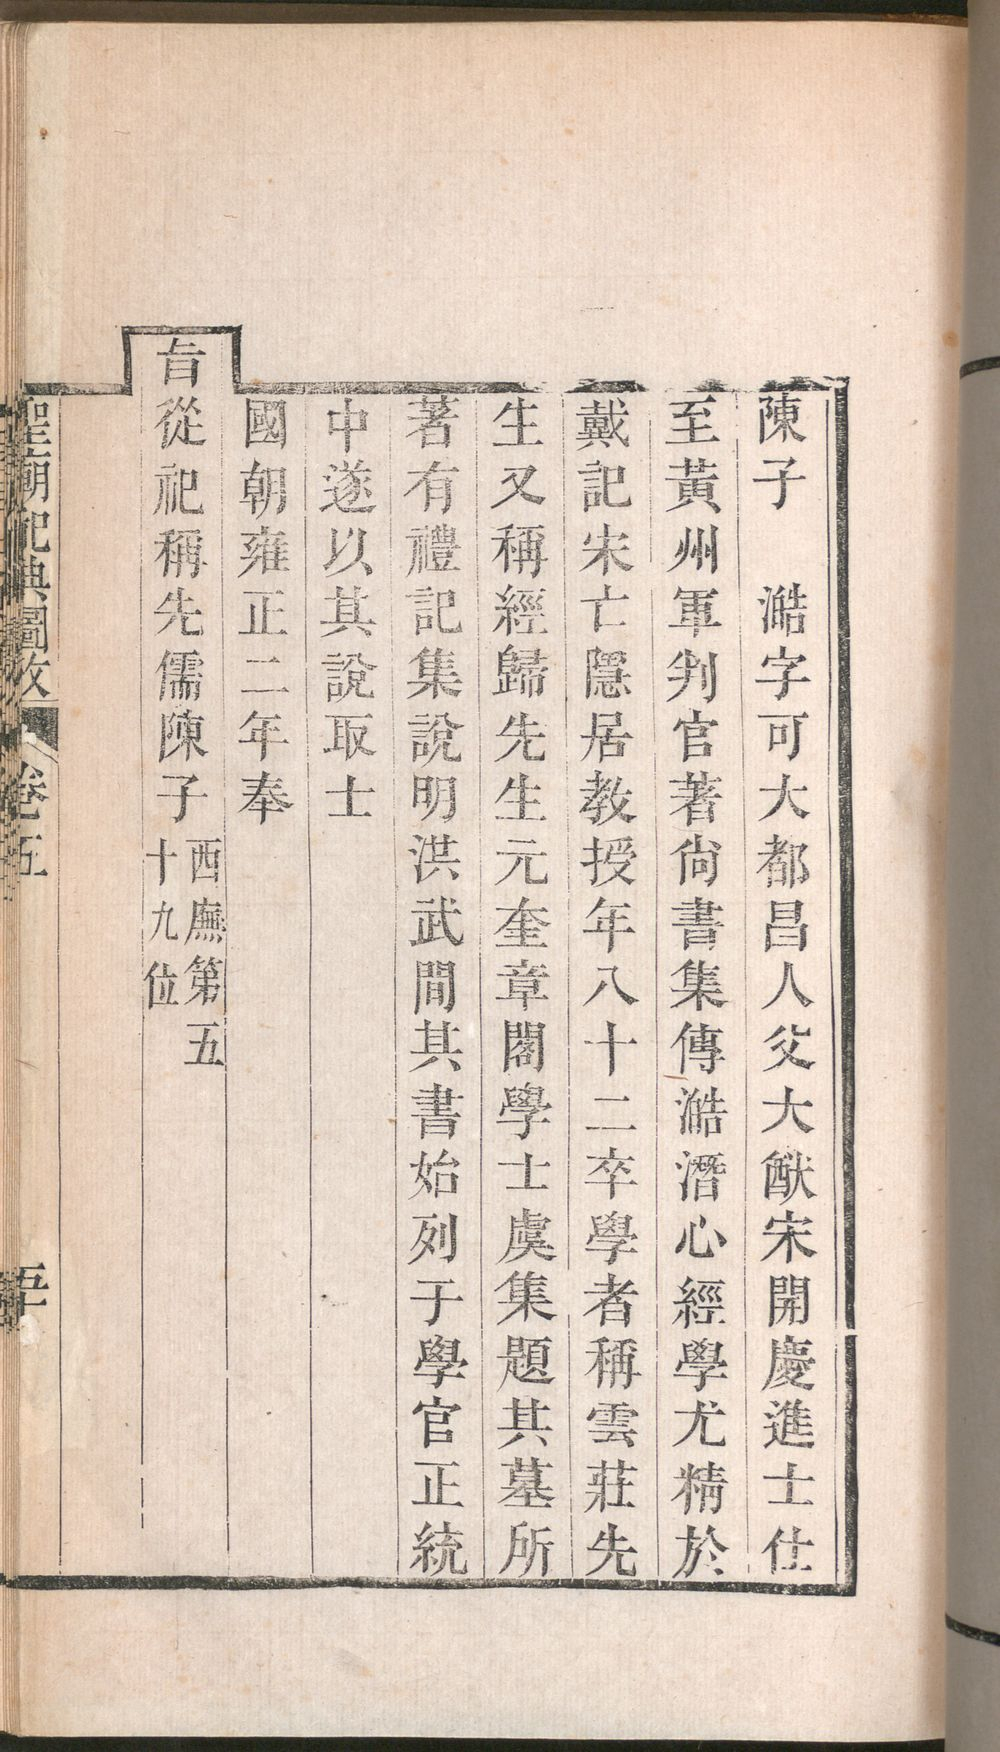 陳子　澔字可大都昌人父大猷宋開慶進士仕
至黃州軍判官著尙書集傳澔潛心經學尤精於
戴記宋亡隱居教授年八十二卒學者稱雲莊先
生又稱經歸先生元奎章閣學士虞集題其墓所
著有禮記集說明洪武間其書始列于學官正統
中遂以其說取士
國朝雍正二年奉
旨從祀稱先儒陳子西廡第五
十九位
聖廟祀典圖攷
卷五